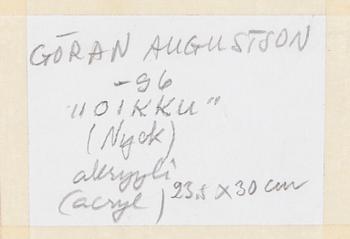 GÖRAN AUGUSTSON
-96
"OIKKU"
(Nyck)
akryyli
(acryl) 23,5 x 30 cm